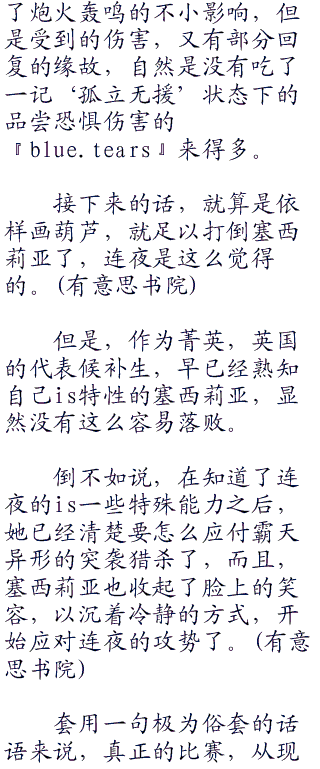 了炮火轰鸣的不小影响，但
是受到的伤害，又有部分回
复的缘故，自然是没有吃了
一记‘孤立无援’状态下的
品尝恐惧伤害的
『blue.tears』来得多。
接下来的话，就算是依
样画葫芦，就足以打倒塞西
莉亚了，连夜是这么觉得
的。(有意思书院)
但是，作为菁英，英国
的代表候补生，早已经熟知
自己is特性的塞西莉亚，显
然没有这么容易落败。
倒不如说，在知道了连
夜的is一些特殊能力之后，
她已经清楚要怎么应付霸天
异形的突袭猎杀了，而且，
塞西莉亚也收起了脸上的笑
容，以沉着冷静的方式，开
始应对连夜的攻势了。(有意
思书院)
套用一句极为俗套的话
语来说，真正的比赛，从现